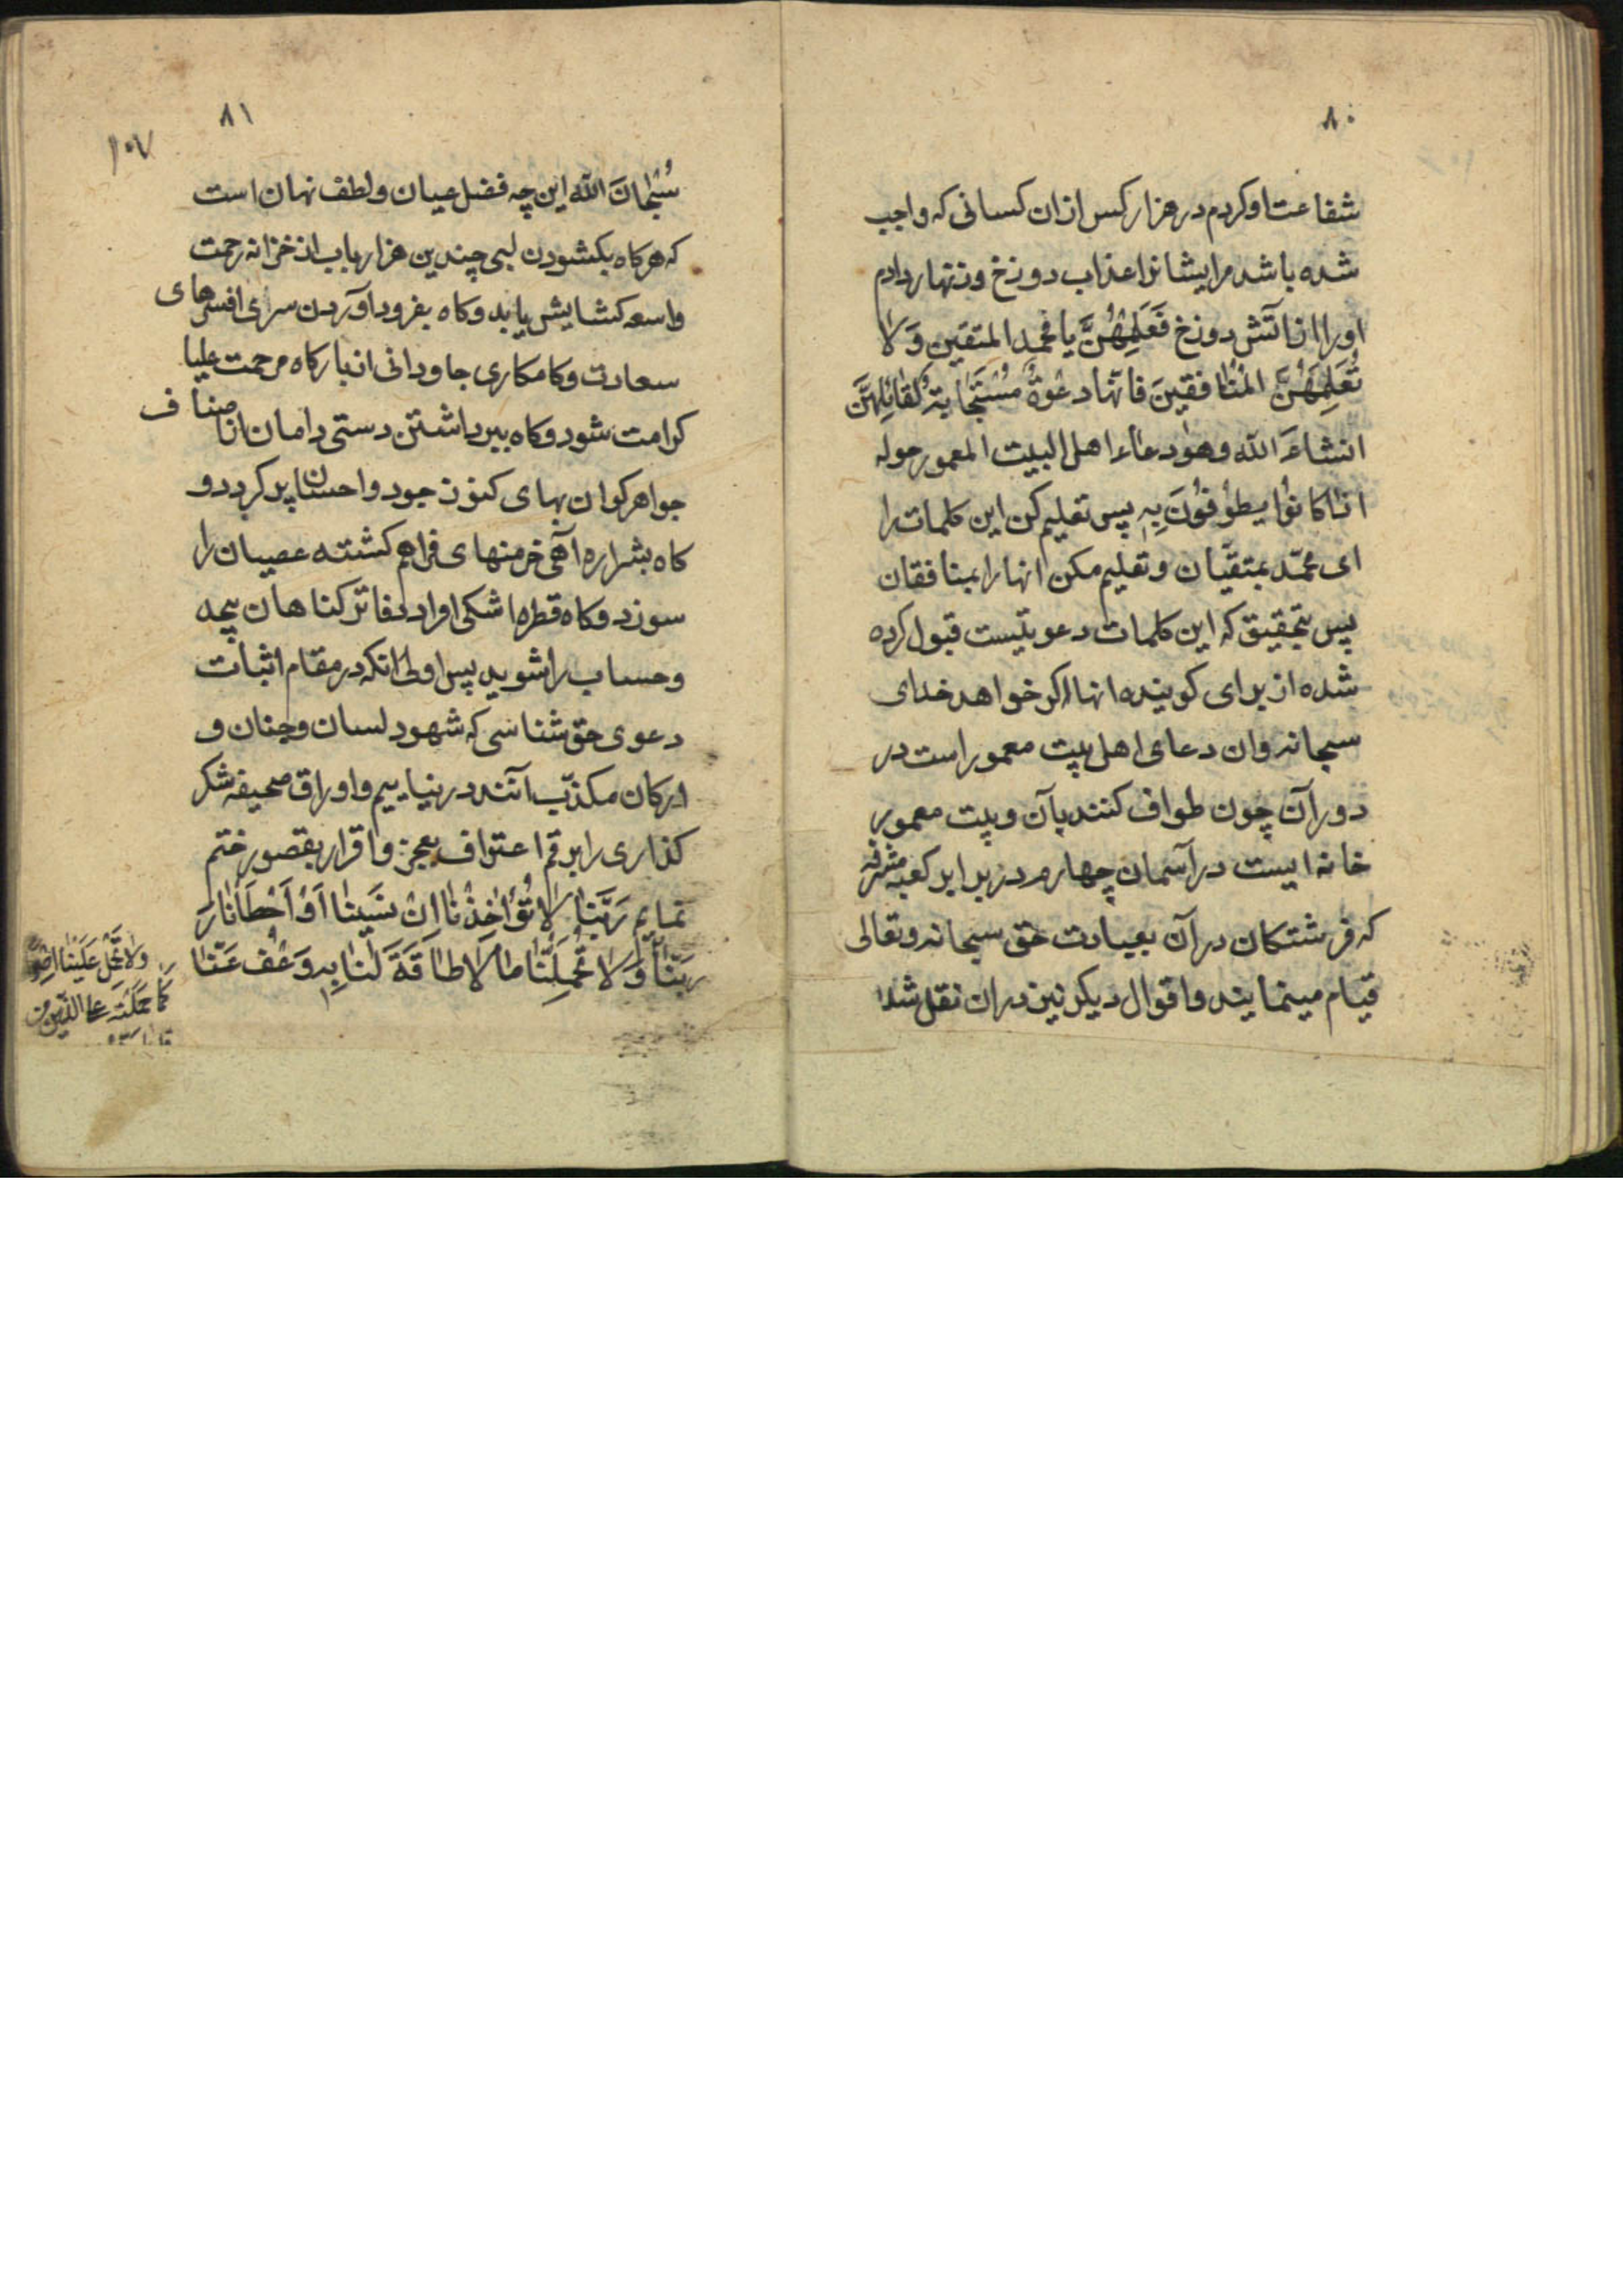 ۸۰
شفاعت او کردم در هزار کس ازان کسانی که واجب
شده باشد مرایشانرا عذاب دوزخ و زنهار دادم
اورا از آتش دوزخ فَعَلِّمْهُنَّ یا محمد المتقین وَلا
تُعَلِّمْهُنَّ المُنافقینَ فانّها دعْوةٌ مُسْتَجابَةٌ لِقائِلِهِنَّ
انشاءَ الله وهو دعاء اهل البیت المعمور حوله
اذا کانوُا یطوُفوُنَ بِهِ پس تعلیم کن این کلمات را
ای محمّد بمتقیان و تعلیم مکن انها را بمنافقان
پس بتحقیق که این کلمات دعویتیست قبول کرده
شده از برای کوینده انها اکر خواهد خدای
سبحانه وان دعای اهل بیت معمور است در
دور آن چون طواف کنند بآن و بیت معمور
خانه ایست در آسمان چهارم در برابر کعبه مشرفه
که فرشتکان در آن بعبادت حق سبحانه وتعالی
قیام مینمایند واقوال دیکر نیز دران نقل شد
۸۱
۱۰۷
سُبْحانَ الله این چه فضل عیان ولطف نهان است
که هرکاه بکشودن لبی چندین هزار باب از خزانه رحمت
واسعه کشایش یابد وکاه بفرود آوردن سری افسرهای
سعادت وکامکاری جاودانی از بارکاه مرحمت علیا
کرامت شود وکاه ببرداشتن دستی دامان از اصناف
جواهر کران بهای کنوز جود واحسان پر کردد و
کاه بشراره آهی خرمنهای فراهم کشته عصیان را
سوزد وکاه قطره اشکی اوراد دفاتر کناهان بیحد
وحساب را شوید پس اولی انکه در مقام اثبات
دعوی حق شناسی که شهود لسان وجنان و
ارکان مکذّب آنند در نیاییم واوراق صحیفه شکر
کذاری را برقم اعتراف بعجز واقرار بقصور ختم
نماییم رَبَّنا لا تُؤاخِذْنا اِنْ نَسَینا اَوْ اَخْطَأنا رَ
ربَّنا وَلا تُحَمِلَنّا ما لا طاقَةَ لَنا بِهِ وَعْفُ عَنّا
ولا تَحْمِلْ عَلَیْنا اِصْراً
کَما حَمَلْتَهُ علی الَّذین من
قبلنا